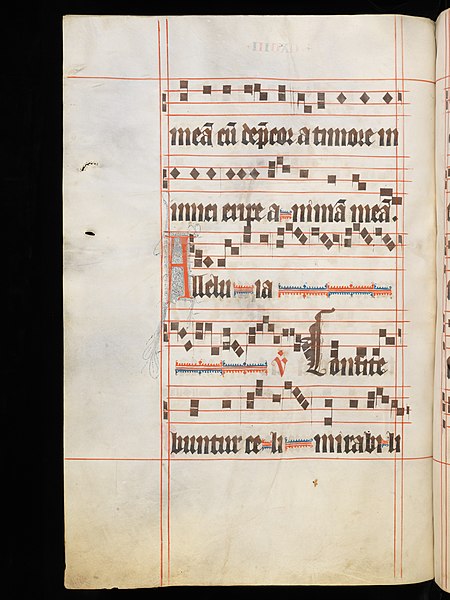 meā cū dep̄cor a timore in
imici eripe a nimā meā.
Allelu ia
v̄ Confite
buntur ce li mirabi li